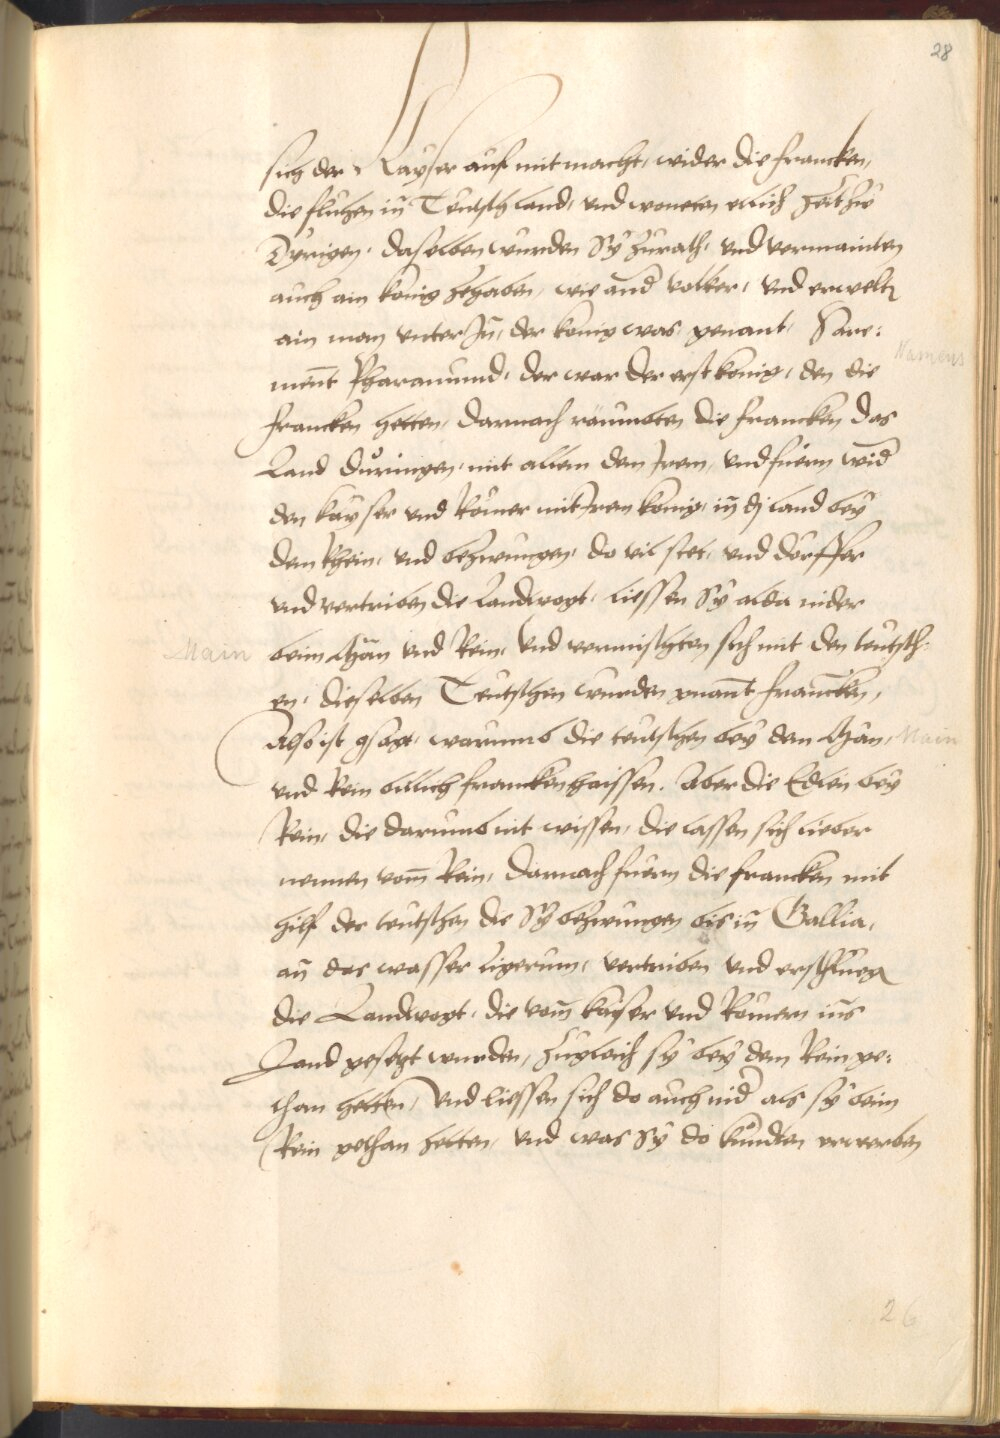 28
sich der Kayser auf mit macht, wider die francken,
die fluhen in Teutsch land, vnd woneten etlich zeit zw
Dyrigen. daselben wurden Sy zurath, vnd vermainten
auch ain konig zehaben, wie and volker, vnd erwelt
ain man vnter In, der konig was genant,
Namens
ment Pharamund, der war der erst konig, den die
francken hetten, darnach raumbten die francken das
Land Duringen, mit allem dem Irem, vnd fuern wid
den kayser vnd Romer mit Irem konig, in land bey
dem Rhein, vnd bezwungen, do vil stet, vnd dorffer
vnd vertriben die Landvogt, liessen Sy alda nider
Main
beim Man vnd Rein, vnd vermischten sich mit den teutsch-
en, dieselben Teutschen wurden gnant francken,
Also ist gsagt, warumb die teutschen bey dem Man,
Main
vnd Rein billich francken haissen. Aber die Edlen bey
Rein, die darumb nit wissen, die lassen sich lieber
nennen vom Rein, Darnach fuern die francken mit
hilf der teutschen die Sy bezwungen bis in Gallia,
an das wasser Ligerum, vertriben vnd erschlueg
die Landvogt, die vom kaiser vnd Romern ins
Land gesetzt wurden, zugleich sy bey dem Rein ge-
than hetten, vnd liessen sich do auch nid als sy beim
Rein gethan hetten, vnd was Sy do kundten erwerben
26